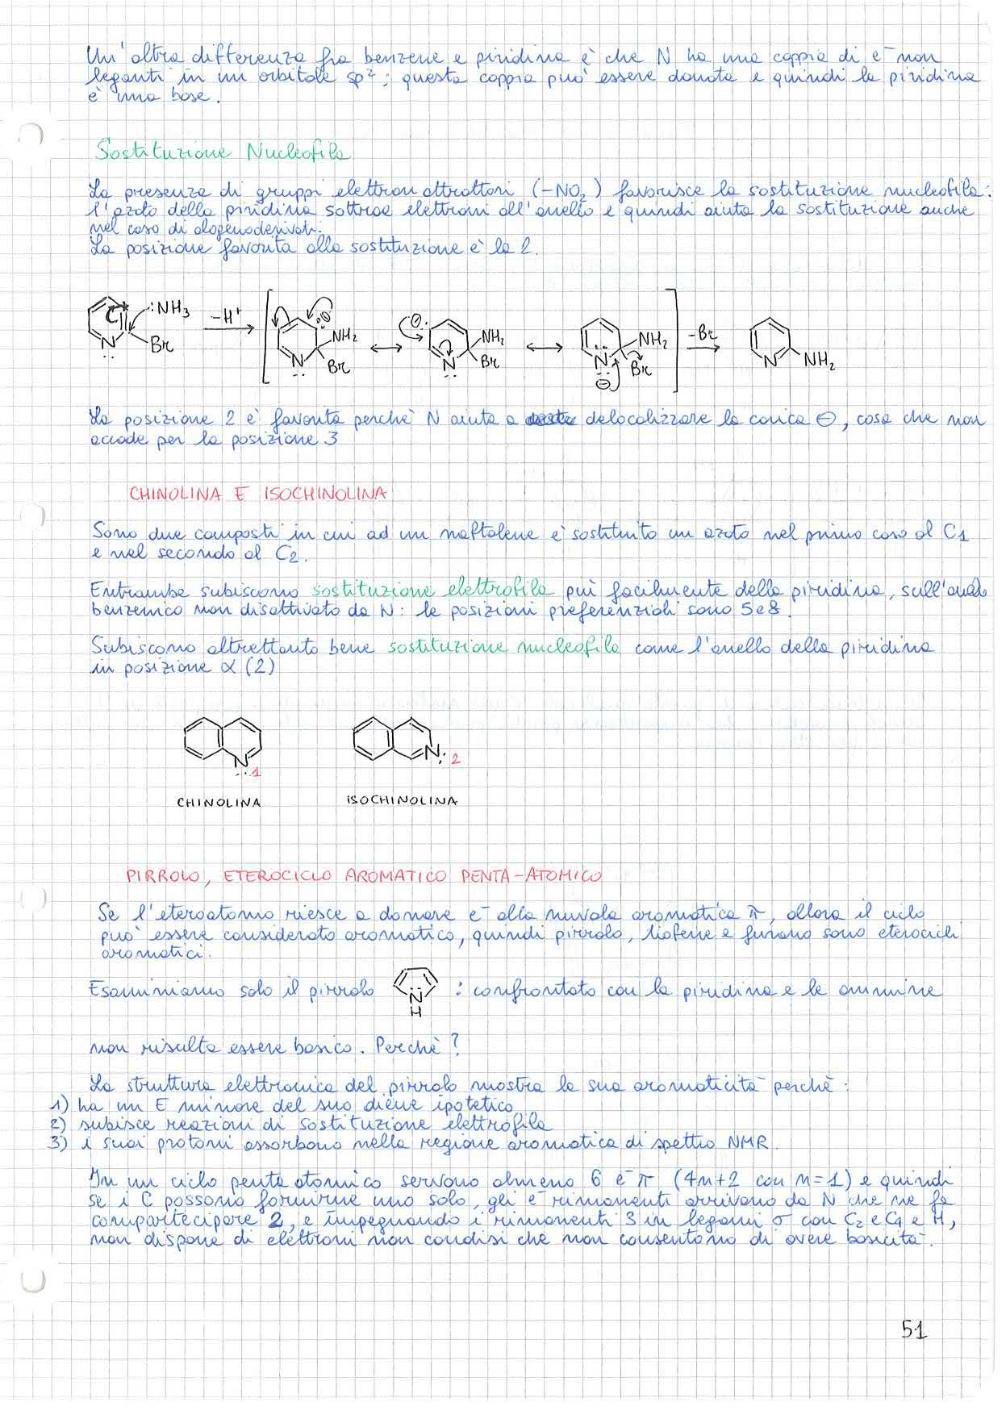 Un'altra differenza fra benzene e piridina è che N ha una coppia di e⁻ non
leganti in un orbitale sp²; questa coppia può essere donata e quindi la piridina
è una base.
Sostituzione Nucleofila
La presenza di gruppi elettron attrattori (-NO₂) favorisce la sostituzione nucleofila:
l'azoto della piridina sottrae elettroni all'anello e quindi aiuta la sostituzione anche
nel caso di alogenoderivati.
La posizione favorita alla sostituzione è la 2.
:NH₃ -H⁺ ⊖ NH₂ ⊖ NH₂ NH₂ -Br
N Br N Br N Br N Br N NH₂
⊖
La posizione 2 è favorita perché N aiuta a delocalizzare la carica ⊖, cosa che non
accade per la posizione 3
CHINOLINA E ISOCHINOLINA
Sono due composti in cui ad un naftalene è sostituito un azoto nel primo caso al C1
e nel secondo al C2.
Entrambe subiscono sostituzione elettrofila più facilmente della piridina, sull'anello
benzenico non disattivato da N: le posizioni preferenziali sono 5 e 8.
Subiscono altrettanto bene sostituzione nucleofila come l'anello della piridina
in posizione α (2)
N 1 N: 2
CHINOLINA ISOCHINOLINA
PIRROLO, ETEROCICLO AROMATICO PENTA-ATOMICO
Se l'eteroatomo riesce a donare e⁻ alla nuvola aromatica π, allora il ciclo
può essere considerato aromatico, quindi pirrolo, tiofene e furano sono eterocicli
aromatici.
Esaminiamo solo il pirrolo N H : confrontato con la piridina e le ammine
non risulta essere basico. Perché?
La struttura elettronica del pirrolo mostra la sua aromaticità perché:
1) ha un E minore del suo diene ipotetico
2) subisce reazioni di sostituzione elettrofila
3) i suoi protoni assorbono nella regione aromatica di spettro NMR.
In un ciclo penta atomico servono almeno 6 e⁻ π (4n+2 con n=1) e quindi
se i C possono fornirne uno solo, gli e⁻ rimanenti arrivano da N che ne fa
compartecipare 2, e impegnando i rimanenti 3 in legami σ con C2 e C4 e H,
non dispone di elettroni non condivisi che non consentono di avere basicità.
51